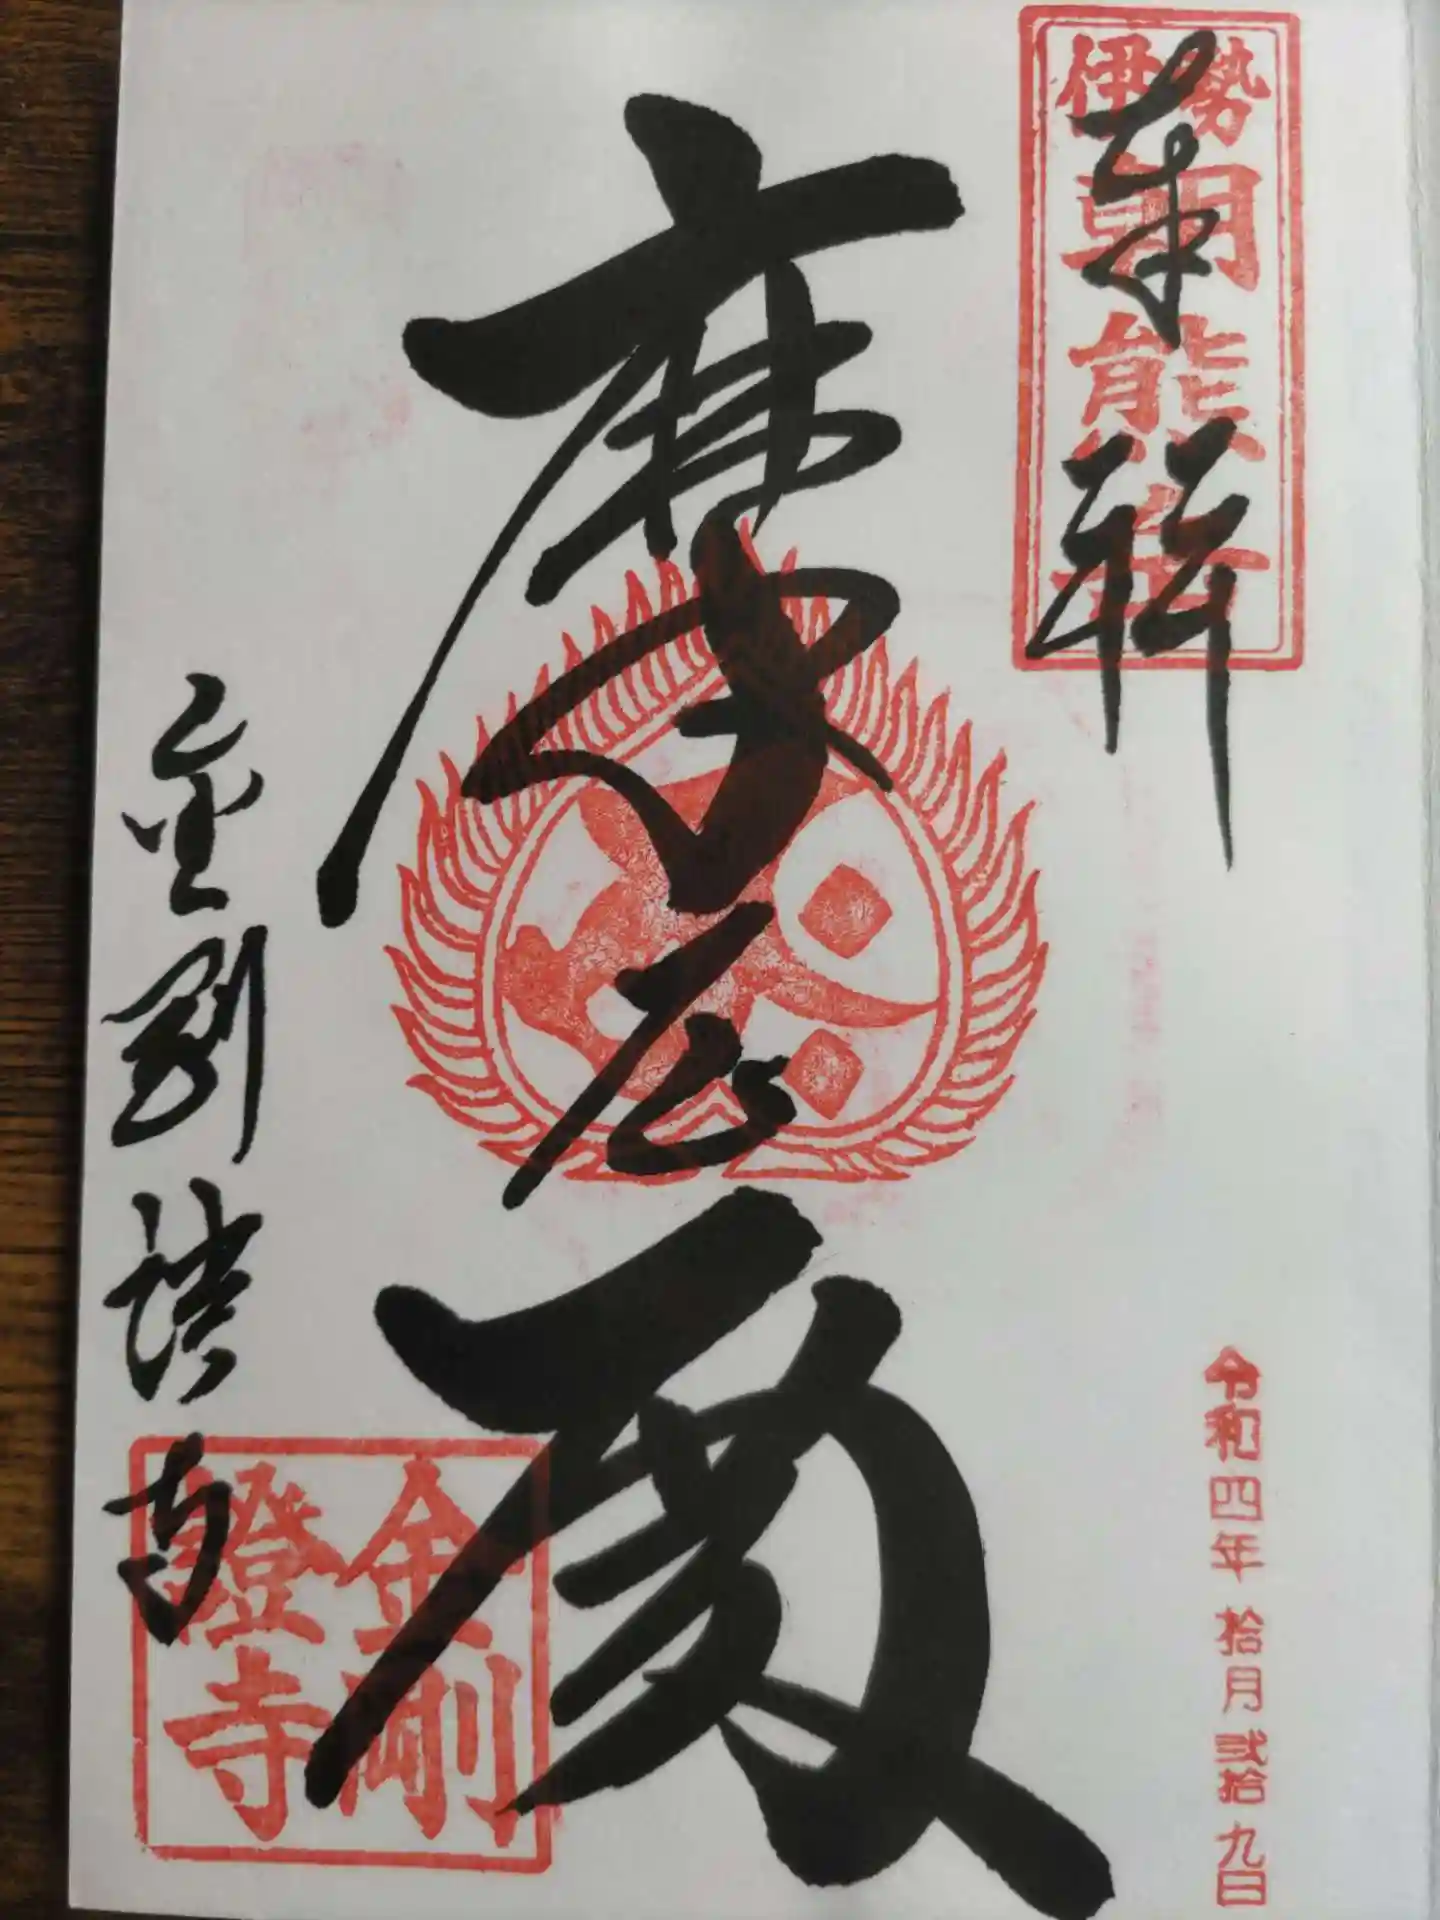 伊勢
朝熊岳
奉拝
摩尼殿
金剛證寺
金剛
證寺
令和四年 拾月 弐拾九日